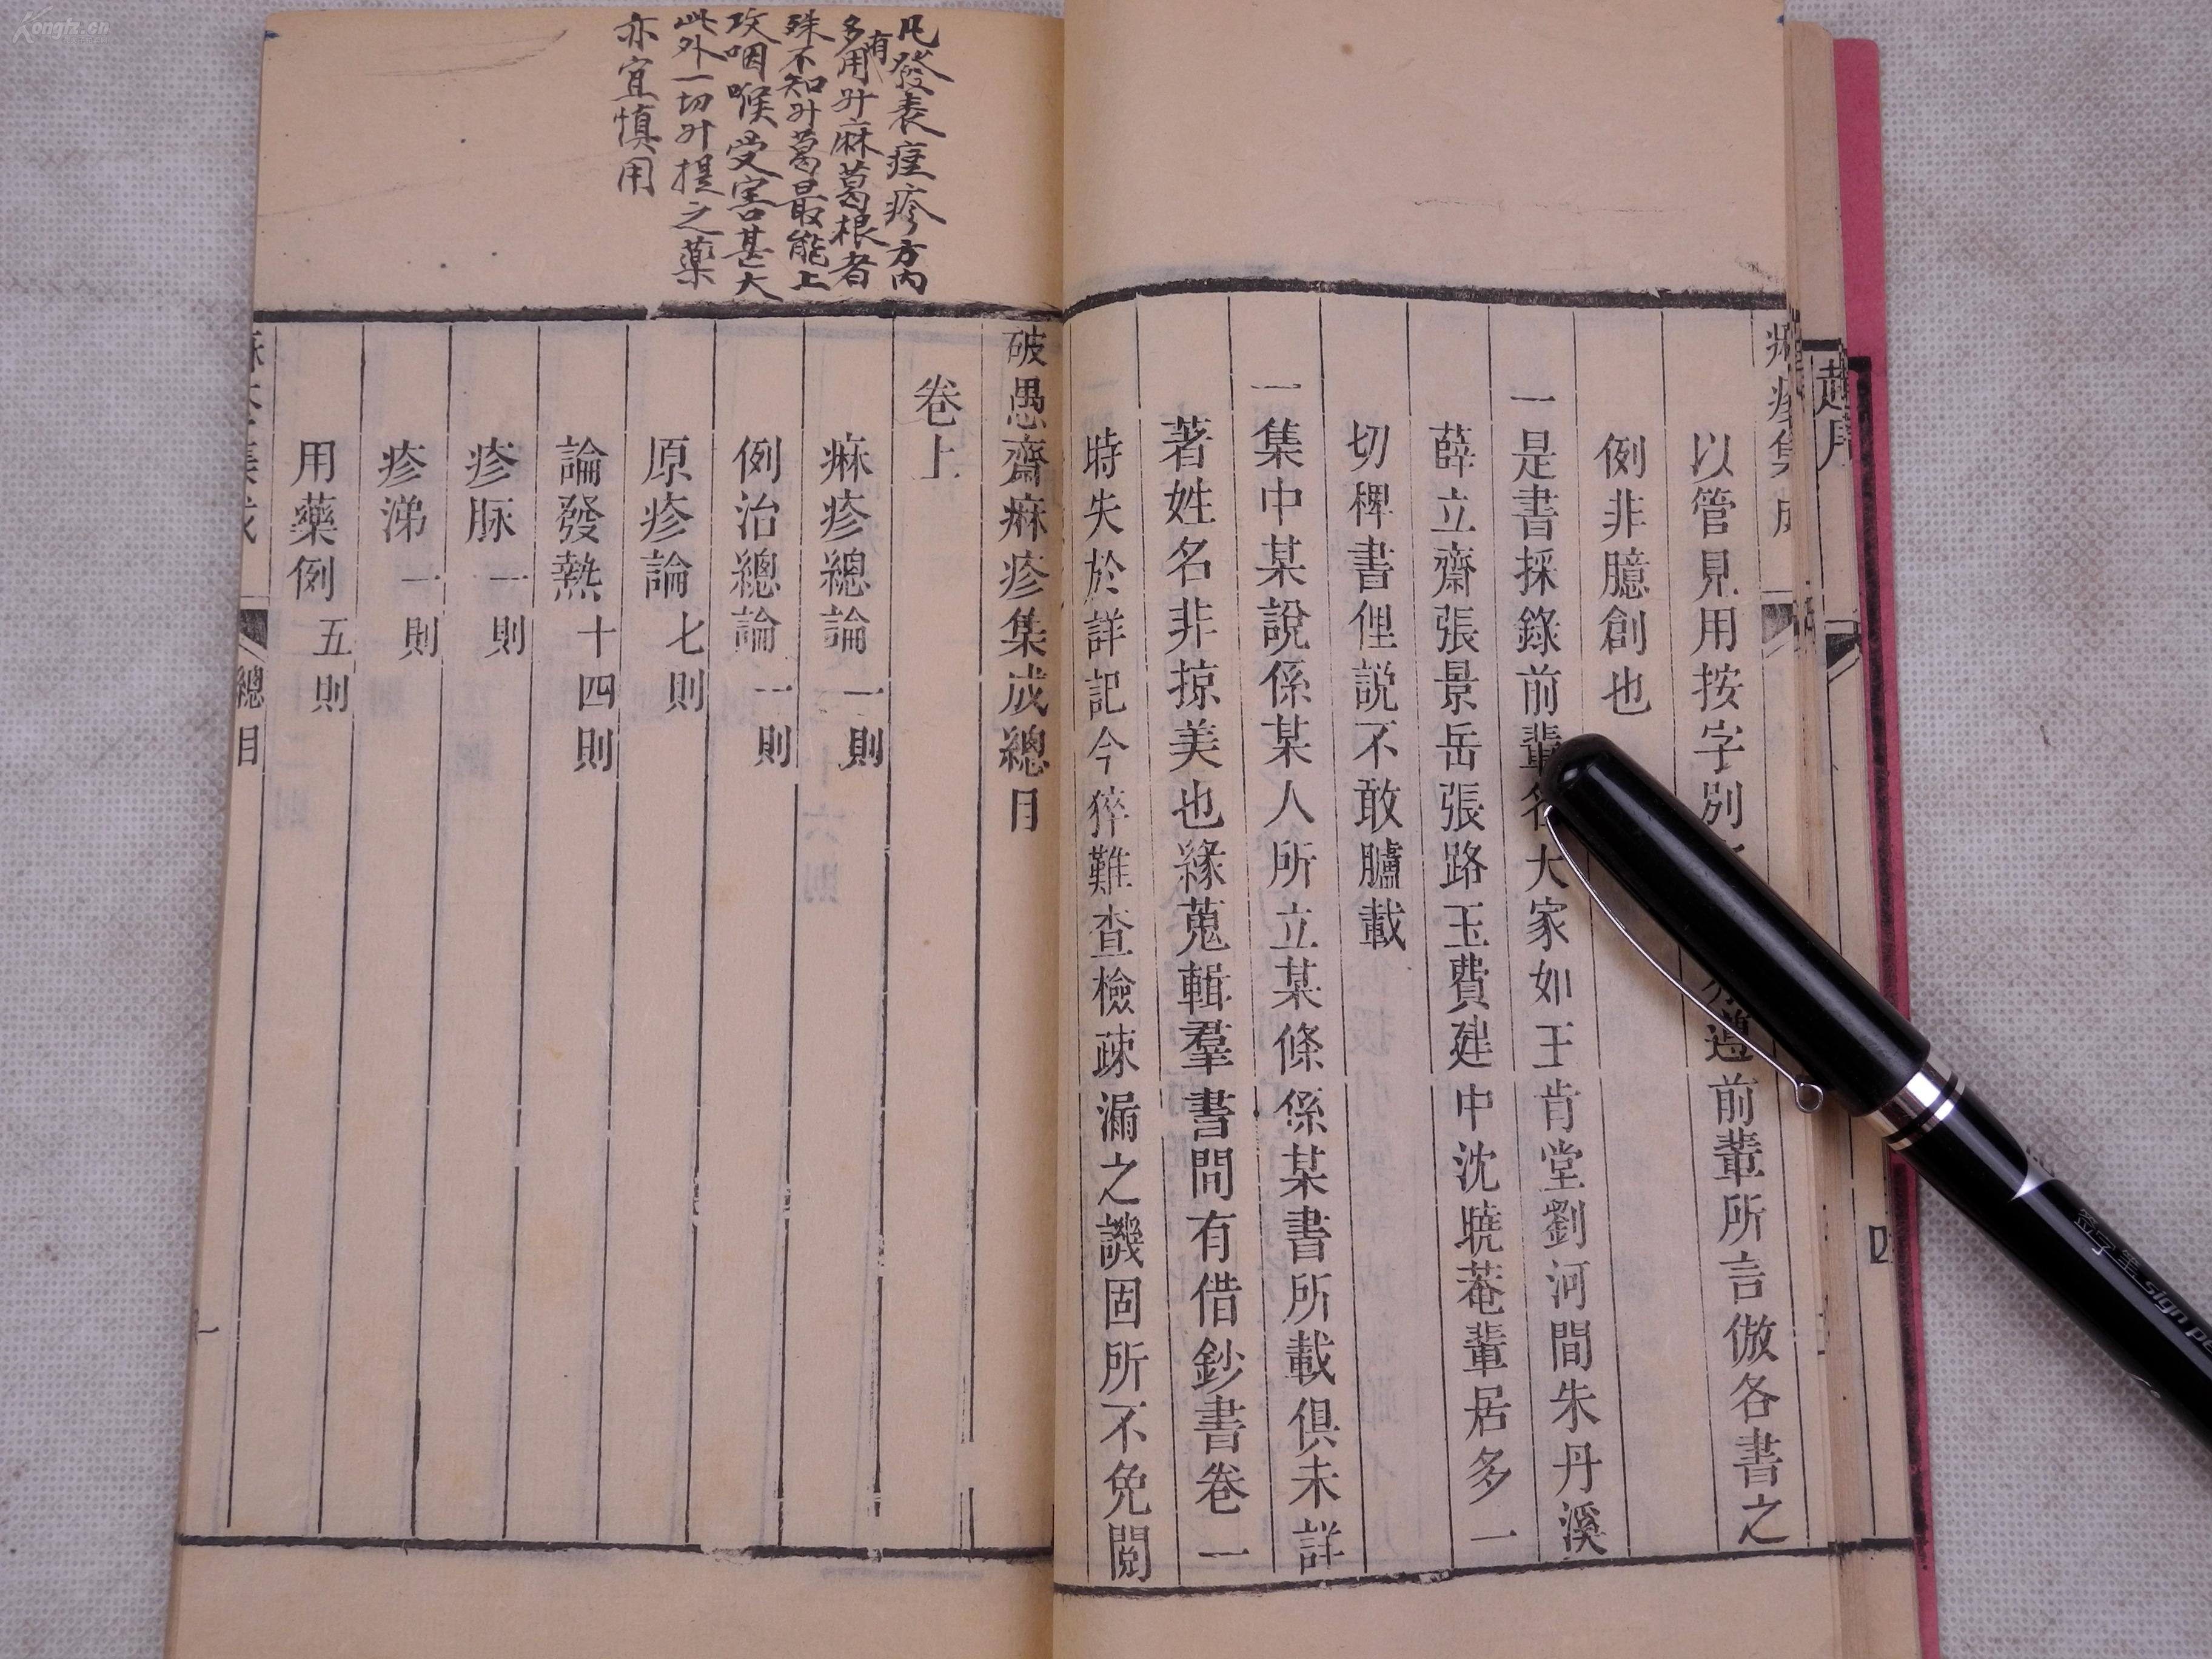 趙序
四
以管見用按字別前輩所言倣各書之
例非臆創也
一是書採錄前輩名大家如王肯堂劉河間朱丹溪
薛立齋張景岳張路玉費建中沈曉菴輩居多一
切稗書俚説不敢臚載
一集中某說係某人所立某條係某書所載俱未詳
著姓名非掠美也緣蒐輯羣書問有借鈔書卷一
時失於詳記今猝難查檢疎漏之譏固所不免閱
凡發表痘疹方內
有多用升麻葛根者
殊不知升葛最能上
攻咽喉受害甚大
此外一切升提之藥
亦宜慎用
破愚齋痳疹集成總目
卷上
痳疹總論一則
例治總論一則
原疹論七則
論發熱十四則
疹脉一則
疹涕一則
用藥例五則
總目
一
Kongfz.cn
签字笔 sign pe